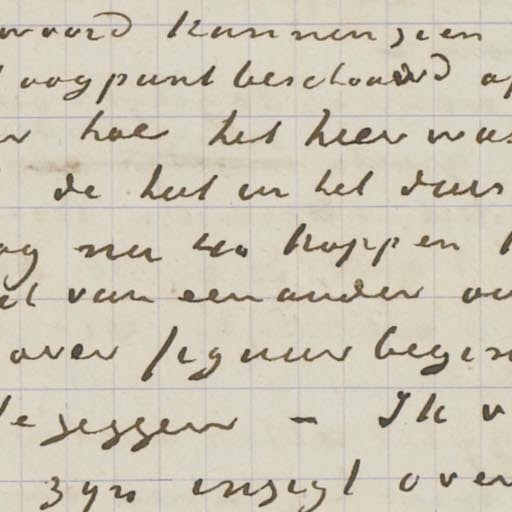 woord kunnen zien
oogpunt beschouwd op
hoe het hier was
de hut in het duis
nog nu zoo koppen
van een ander ou
over figuur begin
te zeggen – Ik v
zyn inzigt over